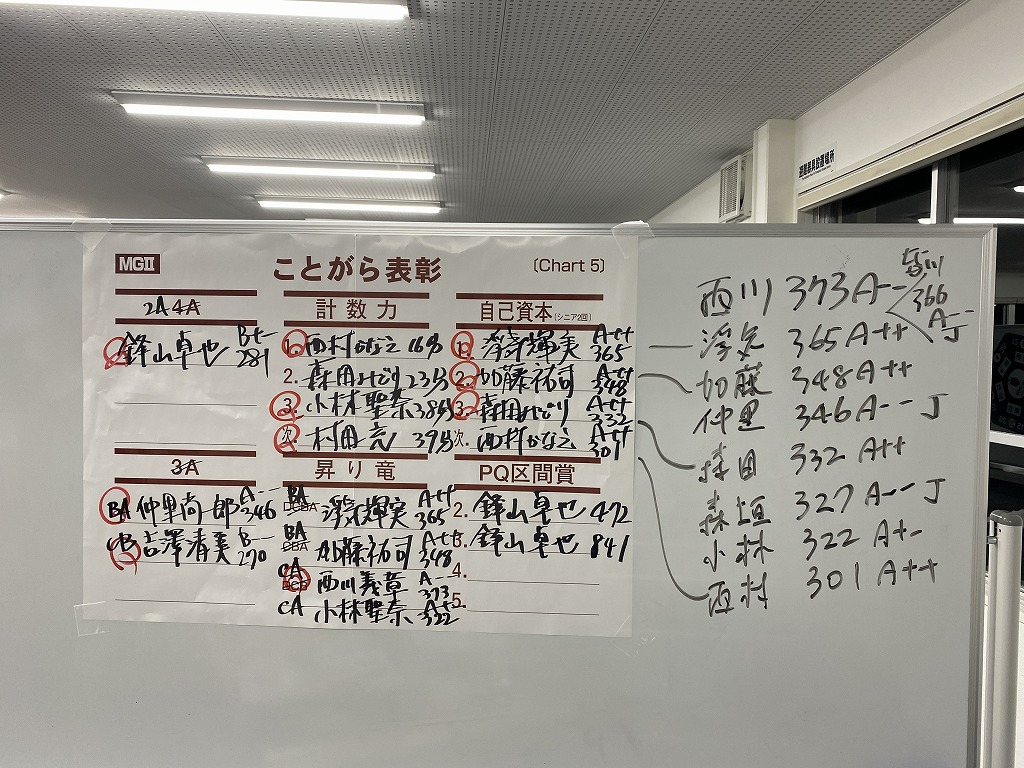 避難器具設置場所
MGⅡ
ことがら表彰
(Chart 5)
2A4A
鋒山卓也 B+- 281
計数力
1. 西村かなえ 16分
2. 森田みどり 23分
3. 小林聖奈 38分
次. 村田亮 39分
自己資本 (シニア2回)
1. 浮気輝実 A++ 365
2. 加藤祐司 A++ 348
3. 森田みどり A++ 332
次. 西村かなえ A++ 301
3A
BA 仲里尚郎 A-- 346
CB 吉澤清美 B-- 270
昇り竜
BA DCBA 浮気輝実 A++ 365
BA CBA 加藤祐司 A++ 348
CA DCB 西川義章 A-- 373
CA 小林聖奈 A+- 322
PQ区間賞
2. 鋒山卓也 472
3. 鋒山卓也 841
4.
5.
西川 373 A--
皆川 366 A-- J
浮気 365 A++
加藤 348 A++
仲里 346 A-- J
森田 332 A++
森垣 327 A-- J
小林 322 A+-
西村 301 A++